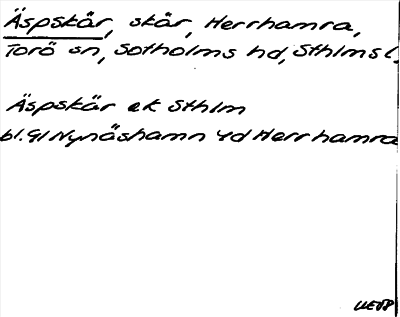 Äspskär, skär, Herrhamra,
Torö sn, Sotholms hd, Sthlms l.
Äspskär ek Sthlm
bl. 91 Nynäshamn 4d Herrhamra